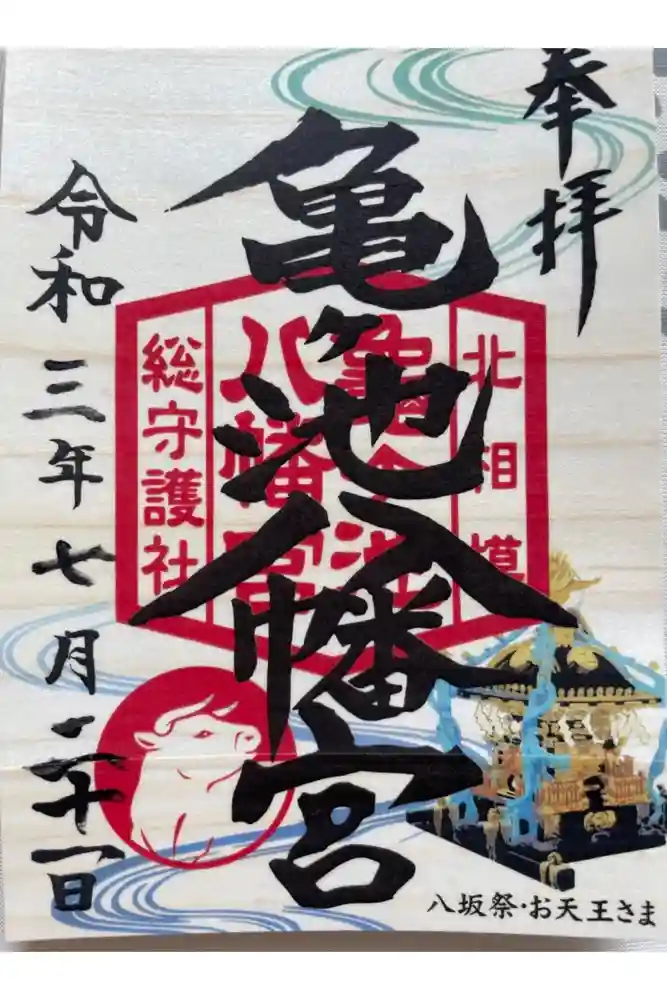 奉拝
北相模
亀ヶ池
八幡宮
総守護社
亀ヶ池八幡宮
令和三年七月二十一日
八坂祭・お天王さま